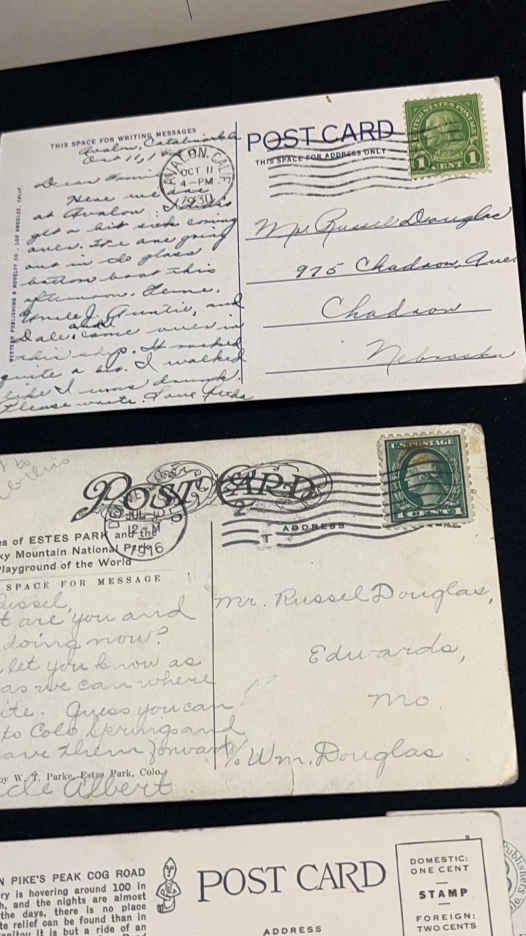 THIS SPACE FOR WRITING MESSAGES
POST CARD
THIS SPACE FOR ADDRESS ONLY
Avalon, Catalina
Oct 11, 1930
AVALON, CALIF.
OCT 11
4-PM
1930
1 CENT 1
Dear
Here we are
at Avalon.
get a bit
over. We are going
out in the glass
bottom boat this
afternoon.
Uncle J. Auntie, and
Dale, came over in
this ship. It rocked
quite a bit. I walked
like I was drunk.
Please write.
WESTERN PUBLISHING & NOVELTY CO., LOS ANGELES, CALIF.
Mr. Russel Douglas
975 Chadron, Ave
Chadron
Nebraska
POST CARD
JUL
12-M
1916
U.S. POSTAGE
ADDRESS
of ESTES PARK and the
ky Mountain National Park
Playground of the World
SPACE FOR MESSAGE
are you and
doing now?
let you know as
as we can where
Guess you can
to Colo. Springs and
have them forward
by W. T. Parke, Estes Park, Colo.
Albert
Mr. Russel Douglas,
Edwards,
Mo.
c/o Wm. Douglas
N PIKE'S PEAK COG ROAD
ry is hovering around 100 in
h, and the nights are almost
the days, there is no place
te relief can be found than in
it is but a ride of an
POST CARD
ADDRESS
DOMESTIC:
ONE CENT
STAMP
FOREIGN:
TWO CENTS
Publishers